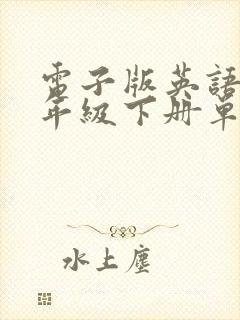 電子版英語
年級下册單
水上塵